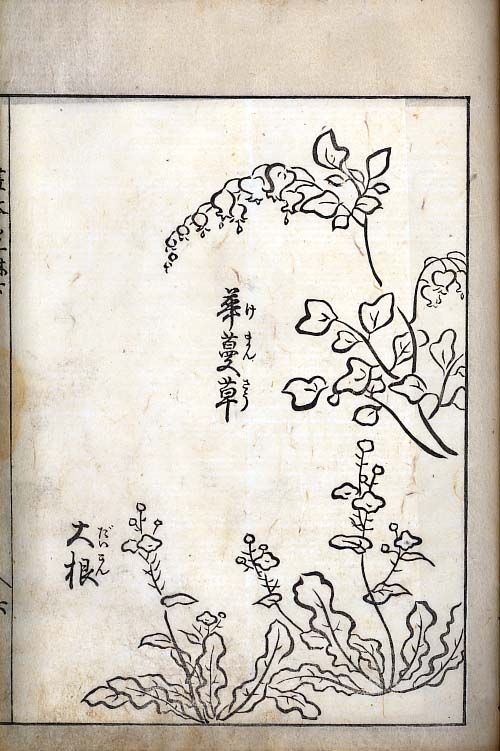 華蔓草
けまんさう
大根
だいこん